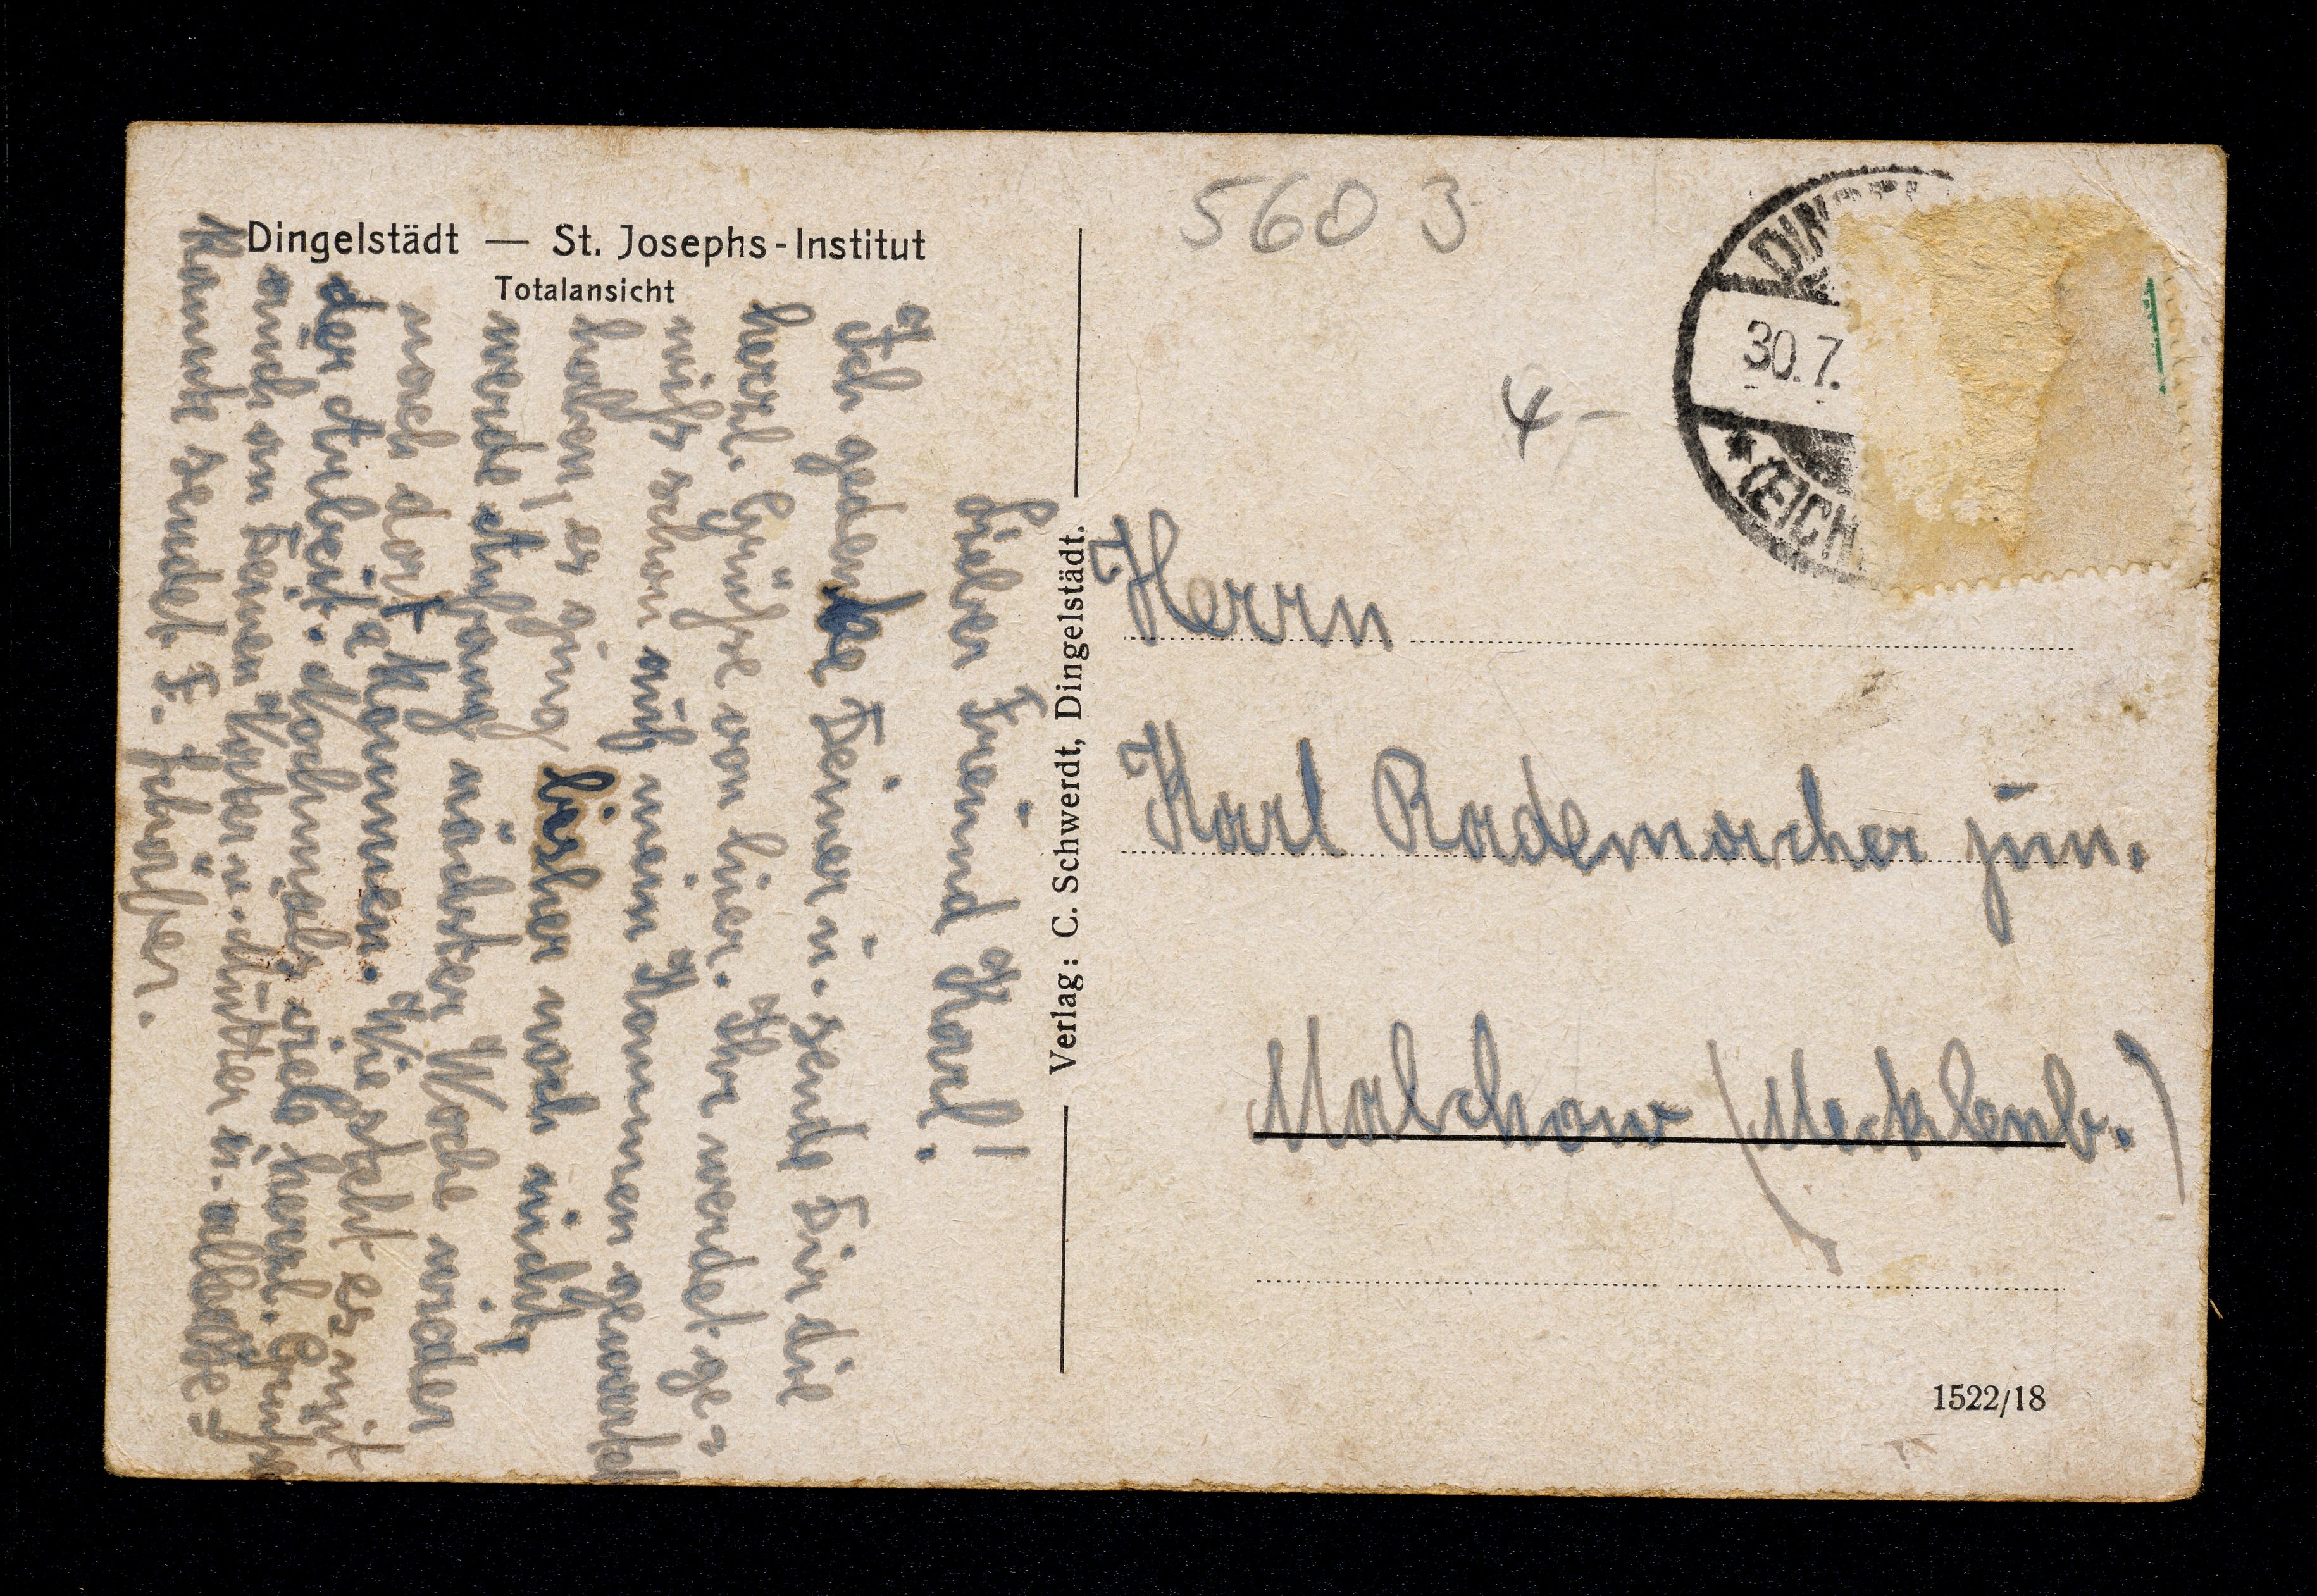 Dingelstädt — St. Josephs-Institut
Totalansicht
Lieber Freund Karl!
Ich gedenke Deiner u. sende Dir die
herzl. Grüße von hier. Ihr werdet ge=
wiß schon auf mein Kommen gewartet
haben, es ging bisher noch nicht,
werde Anfang nächster Woche wieder
nach dort kommen. Wie steht es mit
der Arbeit. Nochmals viele herzl. Grüße
auch an Deinen Vater u. Mutter u. alle
kannte sendet F.
Verlag: C. Schwerdt, Dingelstädt.
5603
4-
30.7.
*(EICH
Herrn
Karl Rademacher jun.
Malchow (Mecklenb.)
1522/18